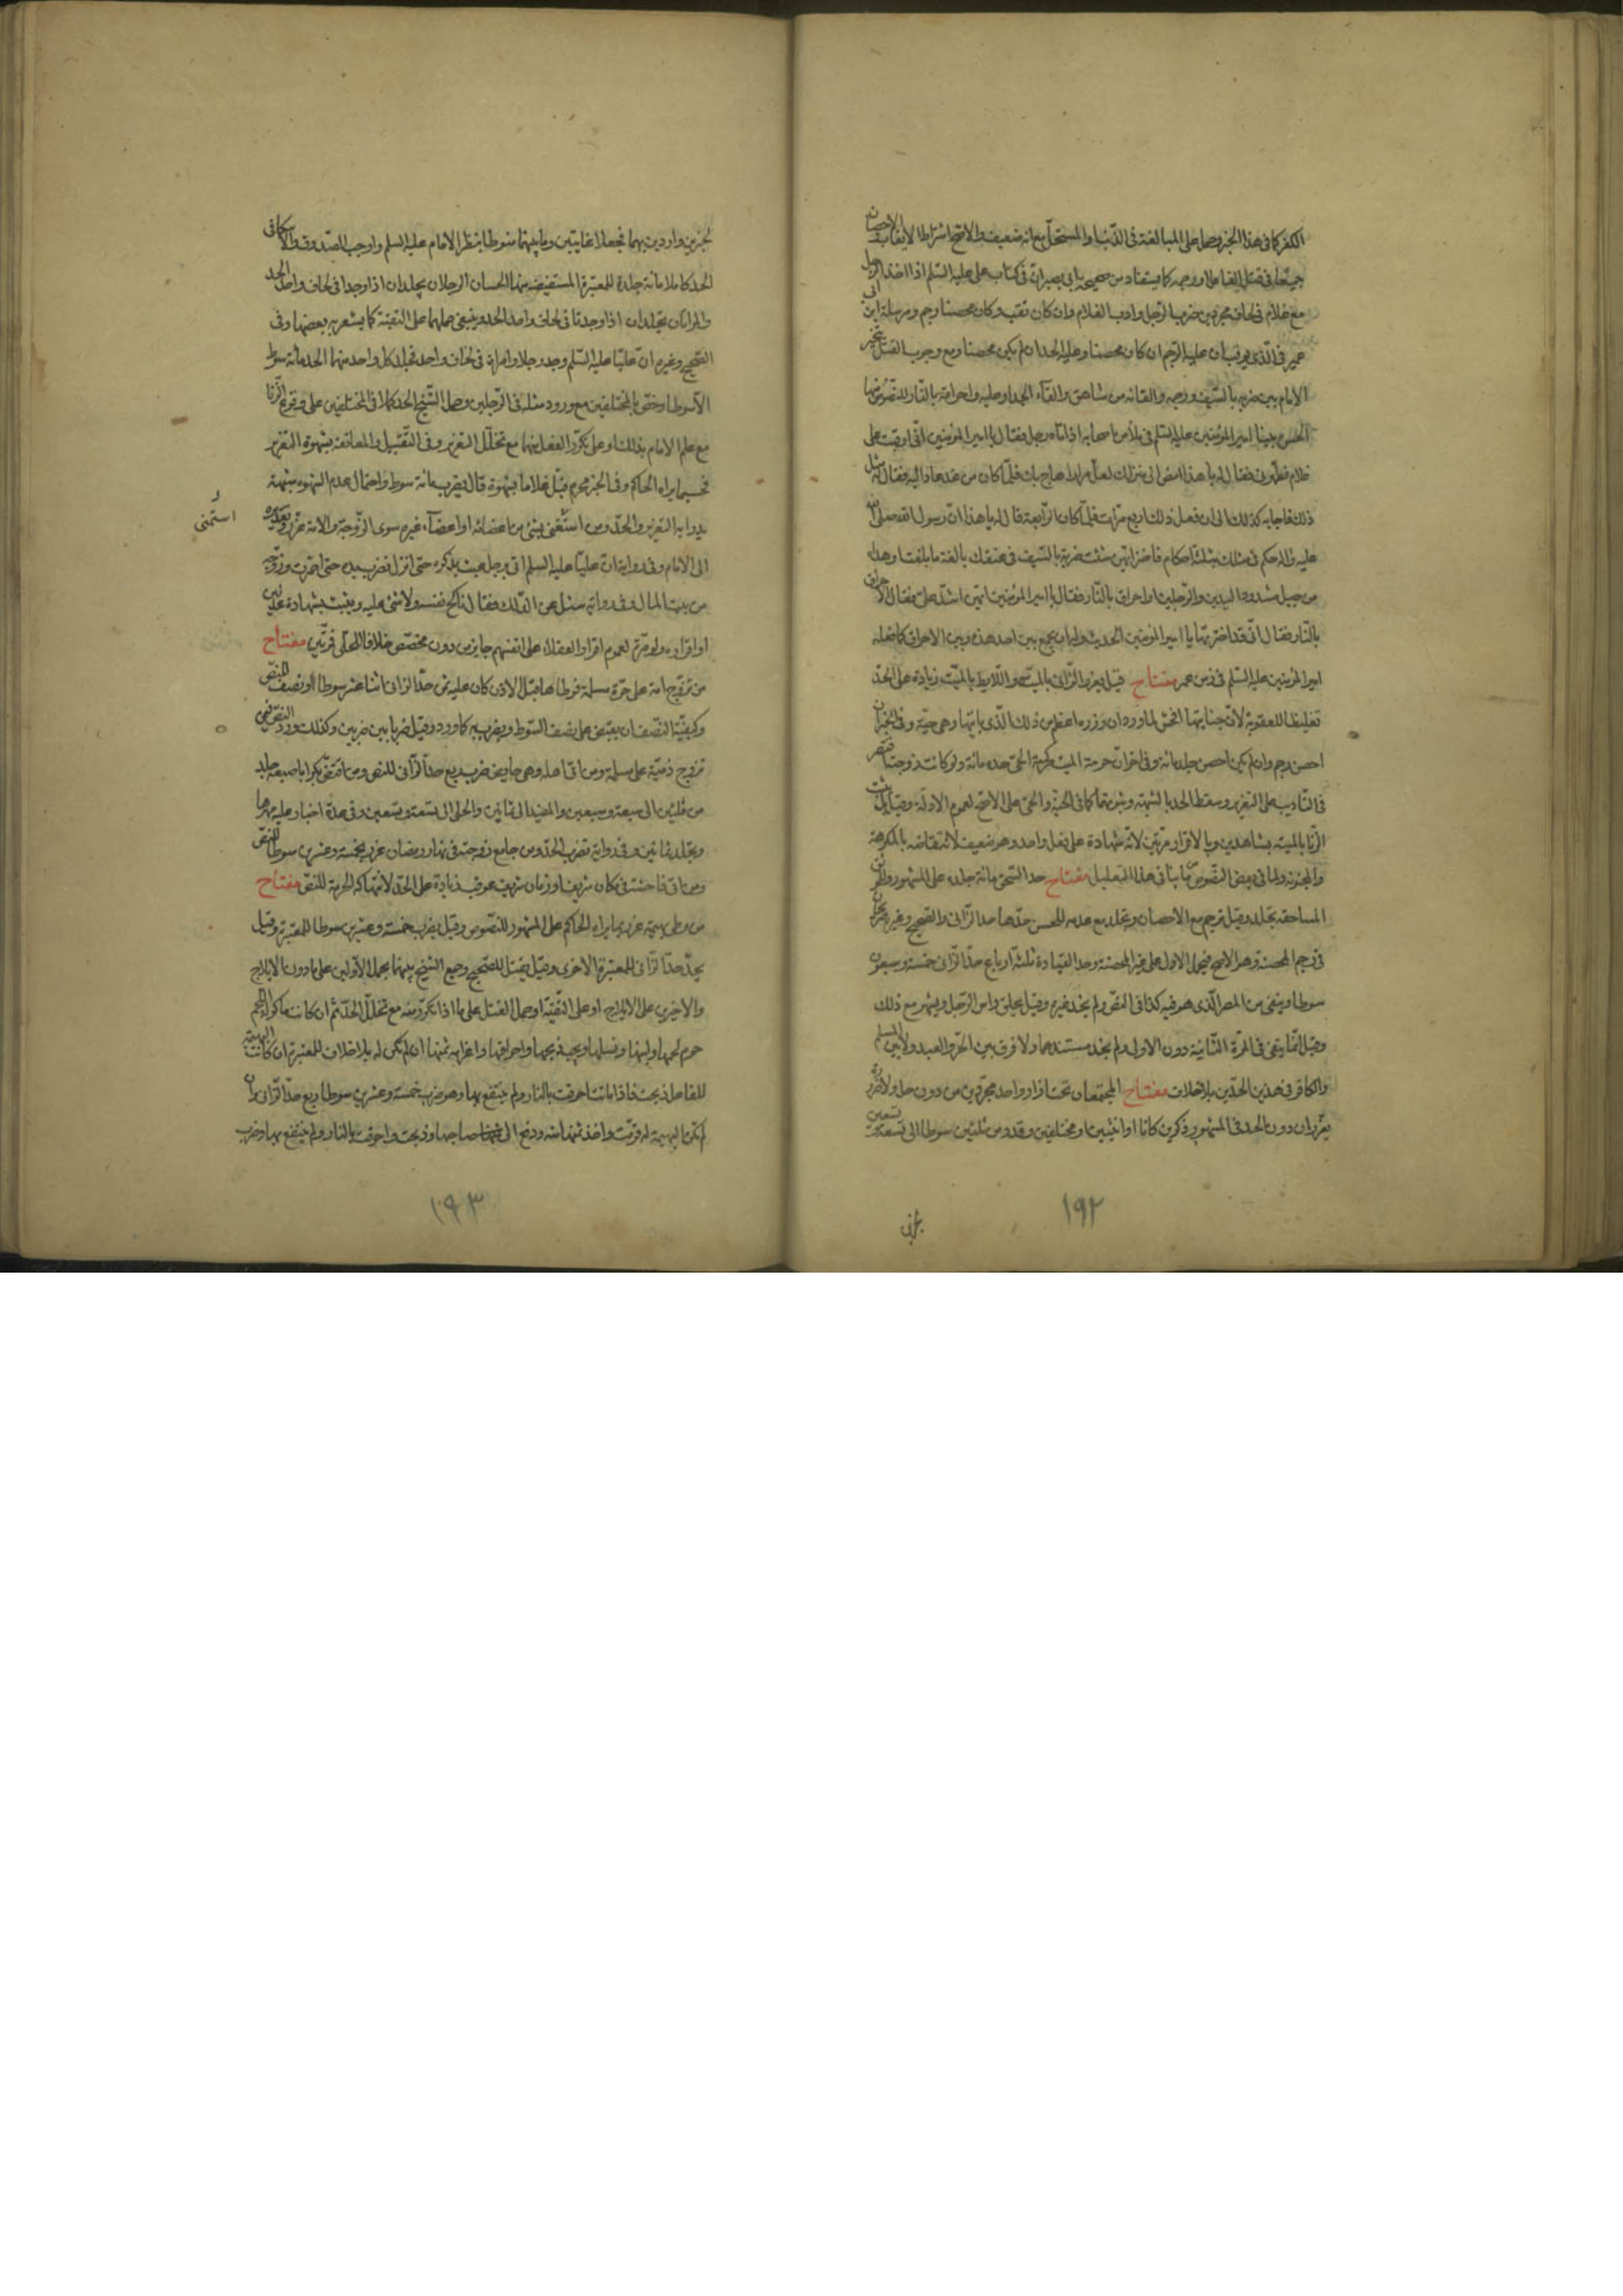 الكفر كما فى هذا الخبر وحمل على المبالغة فى الذنب او المستحل مع انه ضعيف والاصح اشتراط الايقاب والاحصان
جميعا فى قتل الفاعل او رجمه كما يستفاد من صحيحة ابى بصير ان فى كتاب على عليه السلم اذا اخذ الرجل
مع غلام فى لحاف مجردين ضرب الرجل وادب الغلام وان كان ثقب وكان محصنا رجم ومرسلة ابن ابى
عمير فى الذى يوقب ان عليه الرجم ان كان محصنا وعليه الحد ان لم يكن محصنا ومع وجوب القتل يتخير
الامام بين ضربه بالسيف ورجمه والقائه من شاهق والقاء الجدار عليه واحراقه بالنار للنصوص منها
الحسن بينا امير المؤمنين عليه السلم فى ملأ من اصحابه اذ اتاه رجل فقال يا امير المؤمنين انى اوقبت على
غلام فطهرنى فقال له يا هذا امض الى منزلك لعل مرارا هاج بك فلما كان من غد عاد اليه فقال له مثل
ذلك فاجابه كذلك الى ان فعل ذلك اربع مرات فلما كان الرابعة قال له يا هذا ان رسول الله صلى الله
عليه واله حكم فى مثلك بثلثة احكام فاختر ايهن شئت ضربة بالسيف فى عنقك بالغة ما بلغت او هداء
من جبل مشدود اليدين والرجلين او احراق بالنار فقال يا امير المؤمنين ايهن اشد على فقال الاحراق
بالنار فقال انى قد اخترتها يا امير المؤمنين الحديث وله ان يجمع بين احد هذه وبين الاحراق كما فعله
امير المؤمنين عليه السلم فى زمن عمر مفتاح قيل يعزر الزانى بالميتة واللايط بالميت زيادة على الحد
تغليظا للعقوبة لان جنايتها افحش لما ورد ان وزره اعظم من ذلك الذى ياتيها وهى حية وفى الخبر ان
احصن رجم وان لم يكن احصن جلد مائة وفى اخر ان حرمة الميت كحرمة الحى حده مائة ولو كانت زوجته اقتصر
فى التاديب على التعزير وسقط الحد بالشبهة وثبوتها كما فى الحية والحى على الاصح لعموم الادلة وقيل يثبت
الزنا بالميتة بشاهدين وبالاقرار مرتين لانه شهادة على فعل واحد وهو ضعيف لانتقاضه بالمكرهة
والمجنونة ولما فى بعض النصوص ما ينافى هذا التعليل مفتاح حد السحق مائة جلدة على المشهور وظاهر
المساحقة تجلد وقيل ترجم مع الاحصان وتجلد مع عدمه للحسن حدها حد الزانى والصحيح وغيره صريحان
فى رجم المحصنة وهو الاصح فيحمل الاول على غير المحصنة وحد القيادة ثلثة ارباع حد الزانى خمسة وسبعون
سوطا وينفى من المصر الذى هو فيه كذا فى النص ولم نجد غيره وقيل يحلق راس الرجل ويشهر مع ذلك
وقيل انما ينفى فى المرة الثانية دون الاولى ولم نجد مستندهما ولا فرق بين الحر والعبد ولا بين المسلم
والكافر فى هذين الحدين بلا خلاف مفتاح المجتمعان تحت ازار واحد مجردين من دون حايل ولا ضرورة
يعزران دون الحد فى المشهور ذكرين كانا او انثيين او مختلفين وقدر من ثلثين سوطا الى تسعة وتسعين
١٩٢
لخبرين واردين بهما فجعلا غايتين وما بينهما منوطا بنظر الامام عليه السلم واوجب الصدوق والاسكافى
الحد كاملا مائة جلدة للمعتبرة المستفيضة منها الحسان الرجلان يجلدان اذا وجدا فى لحاف واحد الحد
والمراتان تجلدان اذا وجدتا فى لحاف واحد الحد وينبغى حملها على التقية كما يشعر به بعضها وفى
الصحيح وغيره ان عليا عليه السلم وجد رجلا وامراة فى لحاف واحد فجلد كل واحد منهما الحد مائة سوط
الا سوطا وخص بالمختلفين مع ورود مثله فى الرجلين وحمل الشيخ الحد كملا فى المختلفين على وقوع الزنا
مع علم الامام بذلك او على تكرر الفعل منهما مع تخلل التعزير وفى التقبيل والمعانقة بشهوة التعزير
بحسب ما يراه الحاكم وفى الخبر محرم قبل غلاما بشهوة قال يضرب مائة سوط واحتمال عدم الشهوة شبهة
يدرا به التعزير والحد ومن استمنى بشئ من اعضائه او اعضاء غيره سوى الزوجة والامة عزر وتقديره
استمنى
الى الامام وفى رواية ان عليا عليه السلم اتى برجل عبث بذكره حتى انزل فضرب يده حتى احمرت وزوجه
من بيت المال وفى رواية سئل عن الدلك فقال ناكح نفسه ولا شئ عليه ويثبت بشهادة عدلين
او اقراره ولو مرة لعموم اقرار العقلاء على انفسهم جايز من دون مخصص خلافا للحلى فمرتين مفتاح
من تزوج امة على حرة مسلمة فوطاها قبل الاذن كان عليه ثمن حد الزانى اثنا عشر سوطا ونصف للنص
وكيفية النصف ان يقبض على نصف السوط ويضرب به كما ورد وقيل ضربا بين ضربين وكذلك ورد النص فى من
تزوج ذمية على مسلمة ومن اتى اهله وهى حايض ضرب ربع حد الزانى للنص ومن افتض بكرا باصبعه جلد
من ثلثين الى سبعة وسبعين والمفيد الى ثمانين والحلى الى تسعة وتسعين وفى عدة اخبار عليه مهرها
ويجلد ثمانين وفى رواية تضرب الحد ومن جامع زوجته فى نهار رمضان عزر بخمسة وعشرين سوطا للنص
ومن اتى فاحشة فى مكان شريف او زمان شريف عوقب زيادة على الحد لانتهاكه الحرمة للنص مفتاح
من وطى بهيمة عزر بما يراه الحاكم على المشهور للنصوص وقيل يضرب خمسة وعشرين سوطا للمعتبرة وقيل
يحد حد الزانى للمعتبرة الاخرى وقيل يقتل للصحيح وجمع الشيخ بينهما بحمل الاولين على ما دون الايلاج
والاخيرين على الايلاج او على التقية او حمل القتل على ما اذا تكرر منه مع تخلل الحد ثم ان كانت ماكول اللحم
حرم لحمها ولبنها ونسلها ويجب ذبحها واحراقها واغرامه ثمنها ان لم يكن له بلا خلاف للمعتبرة ان كانت البهيمة
للفاعل ذبحت فاذا ماتت احرقت بالنار ولم ينتفع بها وهو ضرب خمسة وعشرين سوطا ربع حد الزانى وان
لم تكن البهيمة له قومت واخذ ثمنها منه ودفع الى صاحبها وذبحت واحرقت بالنار ولم ينتفع بها وضرب
١٩٣